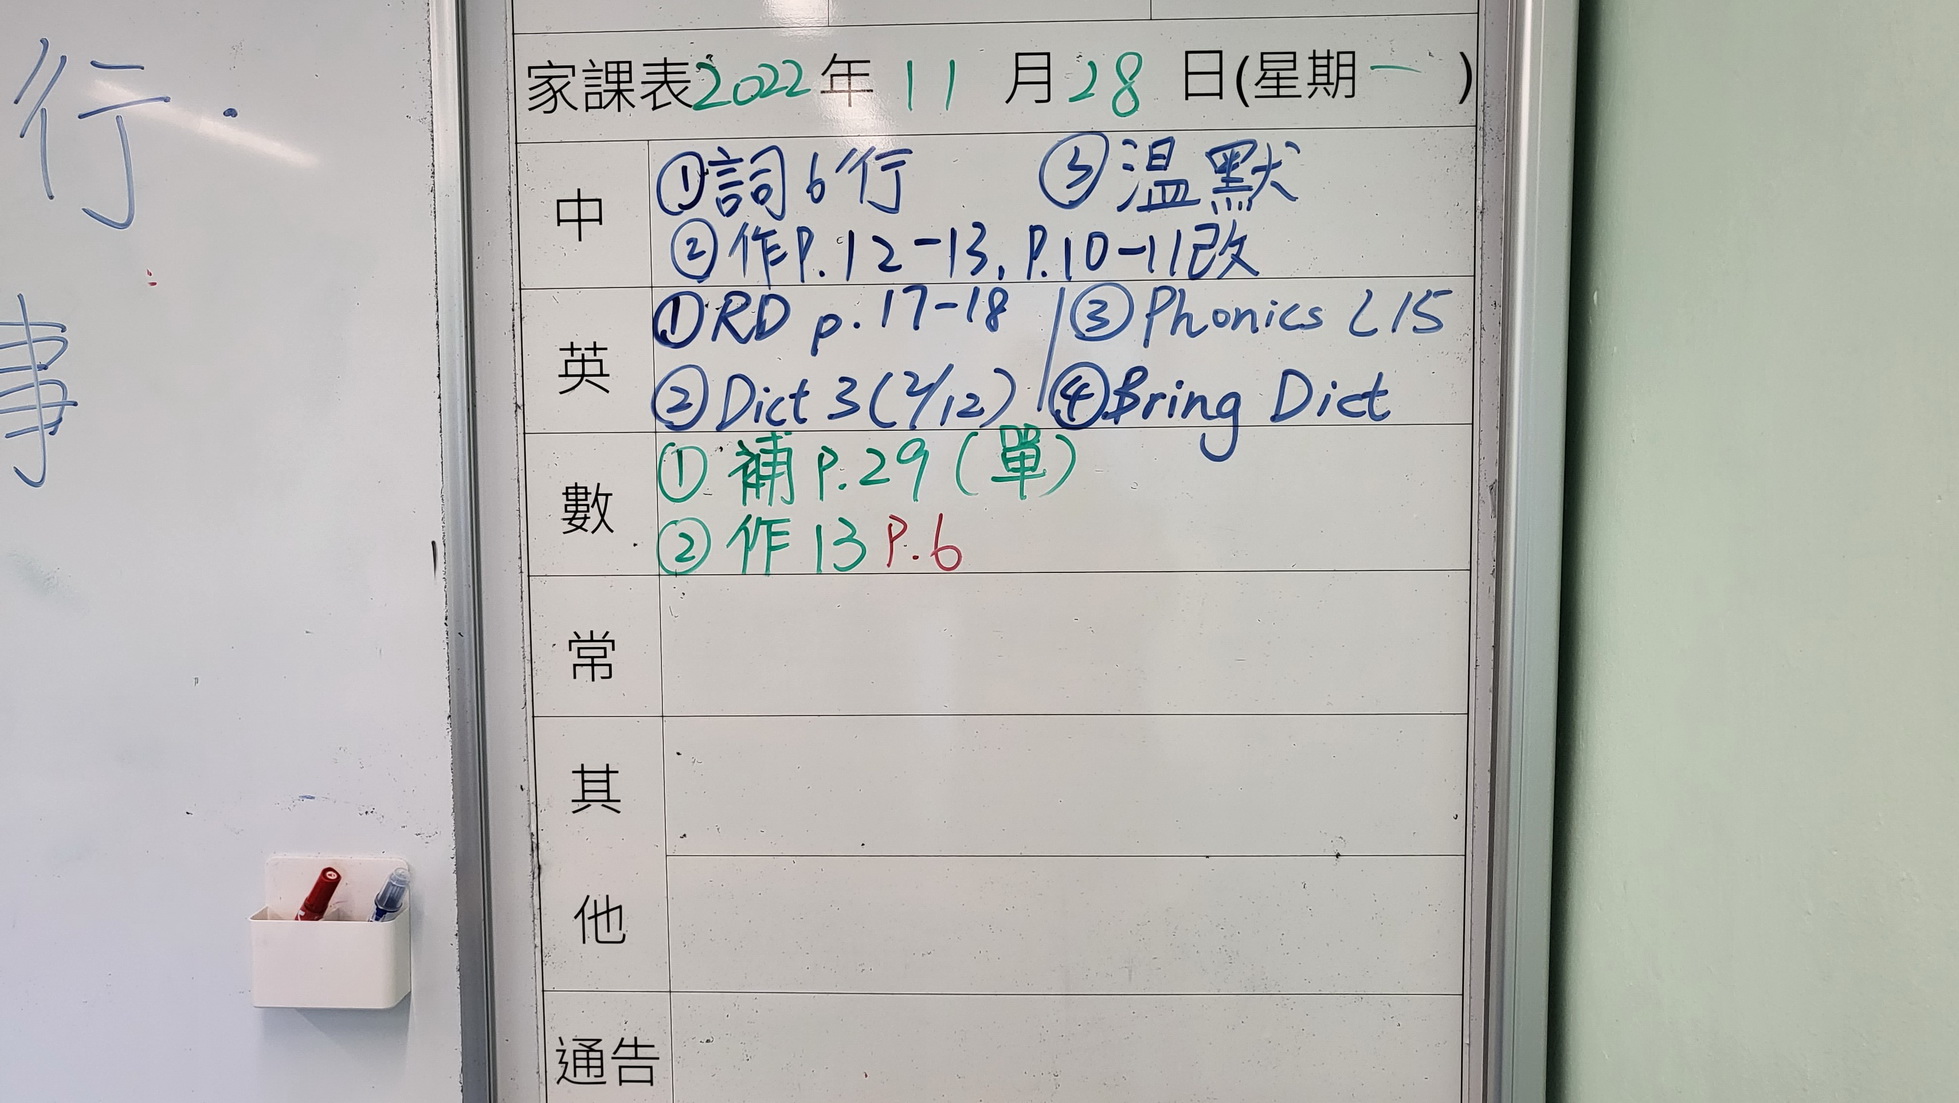 行.
事
家課表2022年 11 月28 日(星期一 )
中
①詞6行 ③溫默
②作P.12-13, P.10-11改
英
①RD p.17-18 ③Phonics L15
②Dict 3(2/12) ④Bring Dict
數
①補P.29(單)
②作13 P.6
常
其
他
通告